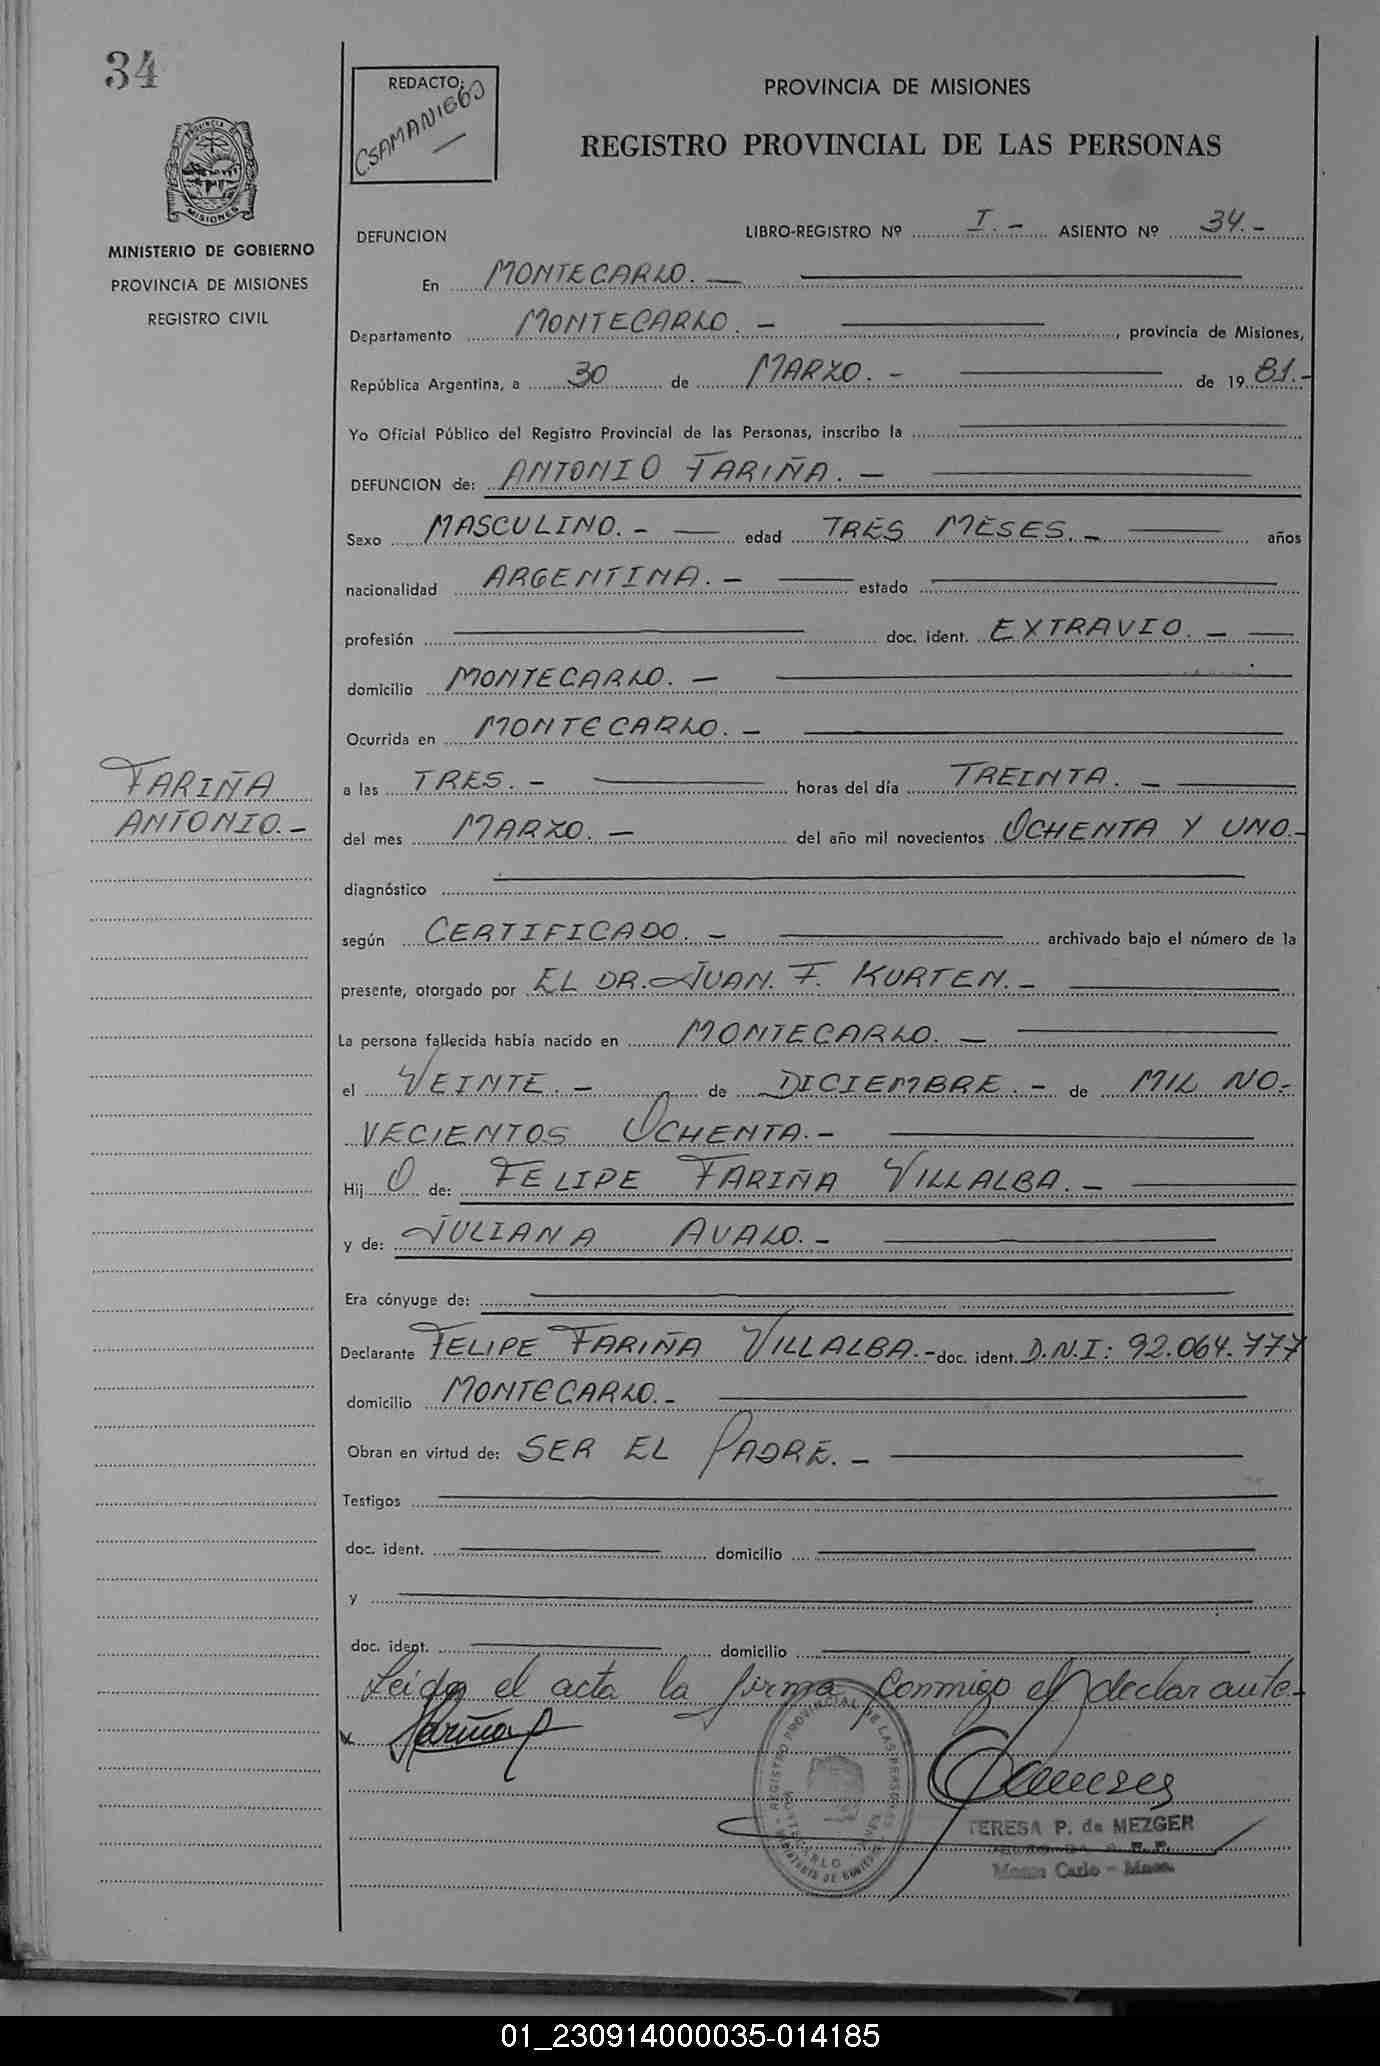 34
REDACTO:
CSAMANIEGO
PROVINCIA DE MISIONES
REGISTRO PROVINCIAL DE LAS PERSONAS
MINISTERIO DE GOBIERNO
PROVINCIA DE MISIONES
REGISTRO CIVIL
DEFUNCION LIBRO-REGISTRO Nº I.- ASIENTO Nº 34.-
En MONTECARLO.-
Departamento MONTECARLO.-, provincia de Misiones,
República Argentina, a 30 de MARZO.- de 19 81.-
Yo Oficial Público del Registro Provincial de las Personas, inscribo la
DEFUNCION de: ANTONIO FARIÑA.-
Sexo MASCULINO.- edad TRES MESES.- años
nacionalidad ARGENTINA.- estado
profesión doc. ident. EXTRAVIO.-
domicilio MONTECARLO.-
Ocurrida en MONTECARLO.-
FARIÑA
ANTONIO.-
a las TRES.- horas del día TREINTA.-
del mes MARZO.- del año mil novecientos OCHENTA Y UNO.-
diagnóstico
según CERTIFICADO.- archivado bajo el número de la
presente, otorgado por EL DR. JUAN. F. KURTEN.-
La persona fallecida había nacido en MONTECARLO.-
el VEINTE.- de DICIEMBRE.- de MIL NO-
VECIENTOS OCHENTA.-
Hij O de: FELIPE FARIÑA VILLALBA.-
y de: JULIANA AVALO.-
Era cónyuge de:
Declarante FELIPE FARIÑA VILLALBA.- doc. ident. D.N.I: 92.064.777
domicilio MONTECARLO.-
Obran en virtud de: SER EL PADRE.-
Testigos
doc. ident. domicilio
y
doc. ident. domicilio
Leida el acta la firma conmigo el declarante.-
x Fariña
TERESA P. de MEZGER
Monte Carlo - Mnes.
01_230914000035-014185